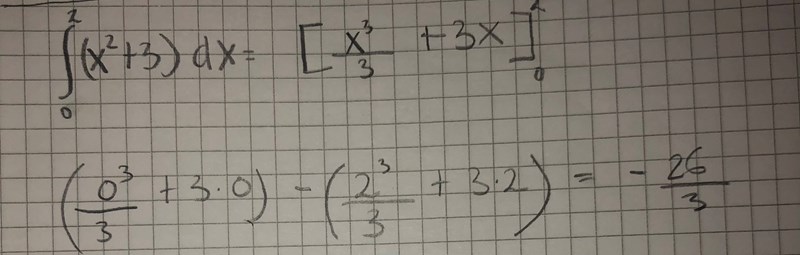 ∫₀² (x² + 3) dx = [x³/3 + 3x]₀²
(0³/3 + 3·0) - (2³/3 + 3·2) = - 26/3